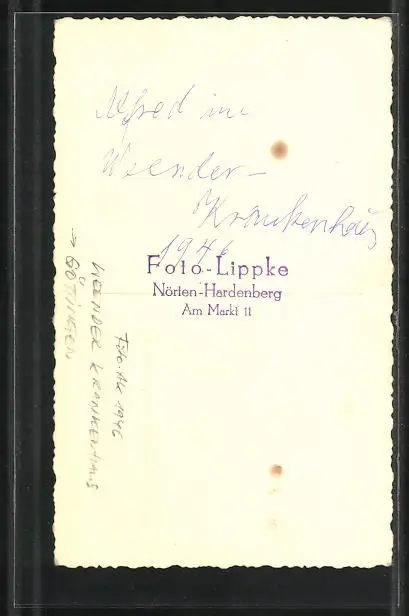 Alfred im
Weender-
Krankenhaus
1946
Foto-Lippke
Nörten-Hardenberg
Am Markt 11
Foto-AK 1946
WEENDER KRANKENHAUS
→ GÖTTINGEN